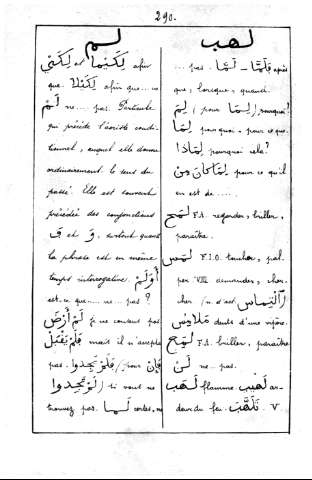 290.
لم
لِكَيْمَا ou لِكَيْ afin
que. لِكَيْلَا afin que... ne
لَمْ ne... pas. Particule
qui précède l'aoriste condi-
tionnel, auquel elle donne
ordinairement le sens du
passé. Elle est souvent
précédée des conjonctions
فَ et وَ, surtout quand
la phrase est en même
temps interrogative. أَوَلَمْ
est-ce que... ne... pas ?
لَمْ أَرْضَ je ne consens pas
فَلَمْ يَقْبَلْ mais il n'accepta
pas. فَإِن لَمْ تَجِدُوا (pour
لَوْ تَجِدُوا) si vous ne
trouvez pas. لَمَا certes, ne
لهب
... pas. لَمَّا – فَلَمَّا après
que, lorsque, quand.
لِمَ (pour لِمَا) pourquoi?
لِمَا pourquoi, pour ce que.
لِمَاذَا pourquoi cela?
لِمَا كَانَ مِنْ pour ce qu'il
en est de .....
لَمَحَ F.A. regarder, briller,
paraître.
لَمَسَ F.I.O. toucher, pal.
per VIII demander, cher.
cher / n. d'act اَلْتِمَاس
مَلَامِس dents d'une vipère.
لَمَعَ F.A. briller, paraître
لَنْ ne... pas.
لَهَب لَهِيب flamme ar-
deur du feu. تَلَهَّبَ V